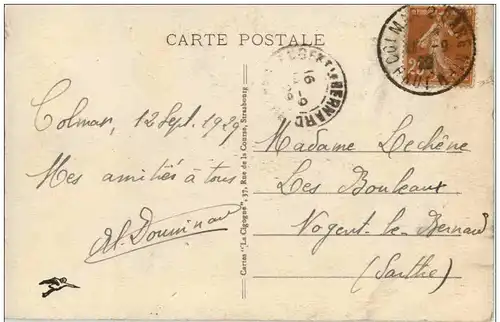 CARTE POSTALE
COLMAR
NOGENT LE BERNARD
16
Colmar, 12 Sept. 1929
Mes amitiés à tous
Madame Lechêne
Les Bouleaux
Nogent-le-Bernard
(Sarthe)
Cartes "La Cigogne", 37, Rue de la Course, Strasbourg